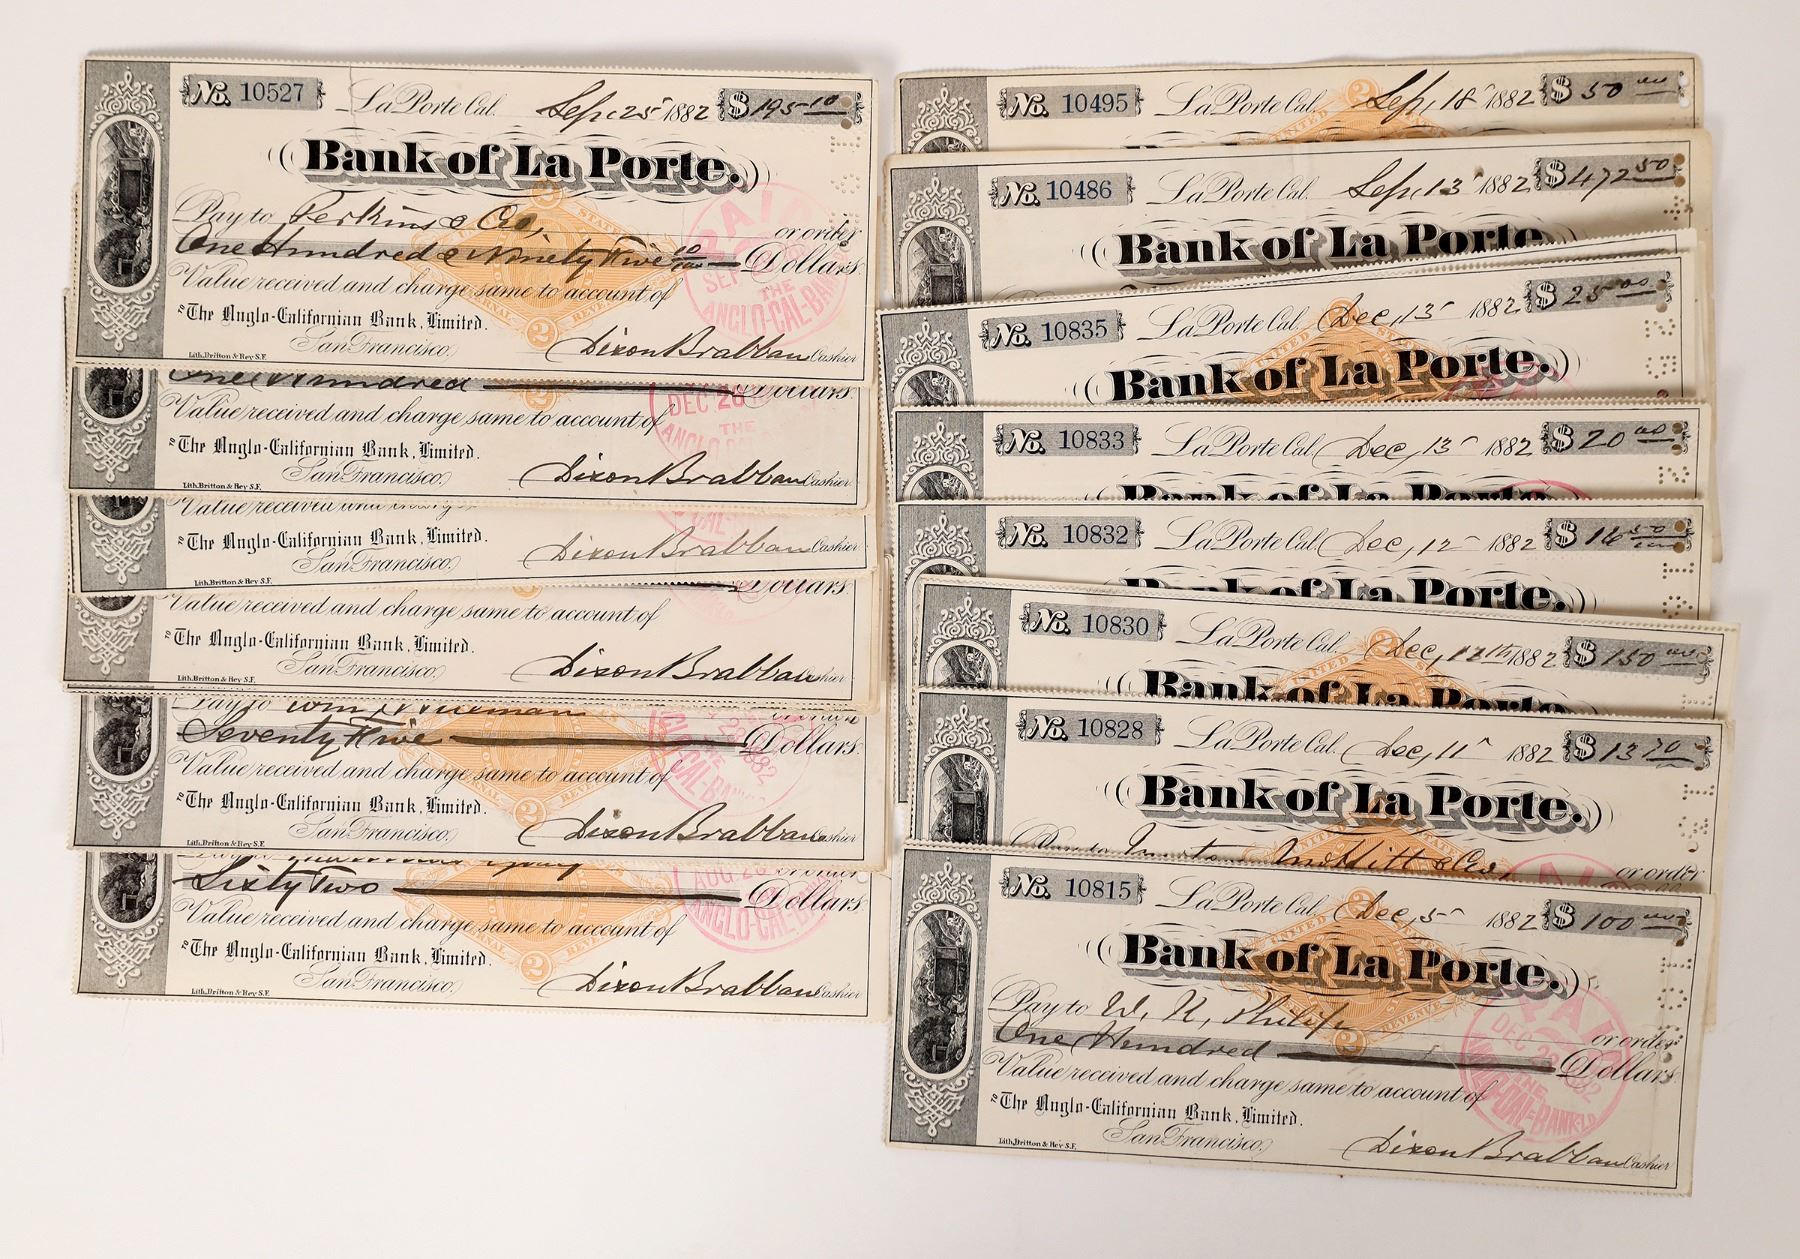 No. 10527 La Porte Cal. Sep. 25 1882 $ 195 10
Bank of La Porte.
Pay to Perkins & Co, or order
One Hundred & Ninety Five 10/100 Dollars
Value received and charge same to account of
The Anglo-Californian Bank, Limited.
San Francisco.
Lith. Britton & Rey S.F. Dixon Brabban Cashier
PAID
SEP
THE
ANGLO-CAL-BANK
UNITED STATES
INTERNAL REVENUE
2
One Hundred Dollars
Value received and charge same to account of
The Anglo-Californian Bank, Limited.
San Francisco.
Lith. Britton & Rey S.F. Dixon Brabban Cashier
DEC 26
THE
Value received and
The Anglo-Californian Bank, Limited.
San Francisco.
Lith. Britton & Rey S.F. Dixon Brabban Cashier
Dollars
Value received and charge same to account of
The Anglo-Californian Bank, Limited.
San Francisco.
Lith. Britton & Rey S.F. Dixon Brabban Cashier
Pay to Wm
Seventy Five Dollars
Value received and charge same to account of
The Anglo-Californian Bank, Limited.
San Francisco.
Lith. Britton & Rey S.F. Dixon Brabban Cashier
2 REVENUE
Sixty Two Dollars
Value received and charge same to account of
The Anglo-Californian Bank, Limited.
San Francisco.
Lith. Britton & Rey S.F. Dixon Brabban Cashier
AUG 26
ANGLO-CAL-BANK
2 REVENUE
No. 10495 La Porte Cal. Sep, 18 1882 $ 50
No. 10486 La Porte Cal. Sep, 13 1882 $ 472 50
Bank of La Porte
No. 10835 La Porte Cal. Dec, 13 1882 $ 25 00
Bank of La Porte.
No. 10833 La Porte Cal. Dec, 13 1882 $ 20 00
Bank of La Porte
No. 10832 La Porte Cal. Dec, 12 1882 $ 16 50
Bank of La Porte.
No. 10830 La Porte Cal. Dec, 12th 1882 $ 150
Bank of La Porte
No. 10828 La Porte Cal. Dec, 11 1882 $ 13 70
Bank of La Porte.
Moffitt & Co, or order
No. 10815 La Porte Cal. Dec, 5 1882 $ 100
Bank of La Porte.
Pay to W. K. or order
One Hundred Dollars
Value received and charge same to account of
The Anglo-Californian Bank, Limited.
San Francisco.
Lith. Britton & Rey S.F. Dixon Brabban Cashier
PAID
DEC 1882
THE
ANGLO-CAL-BANK-LD